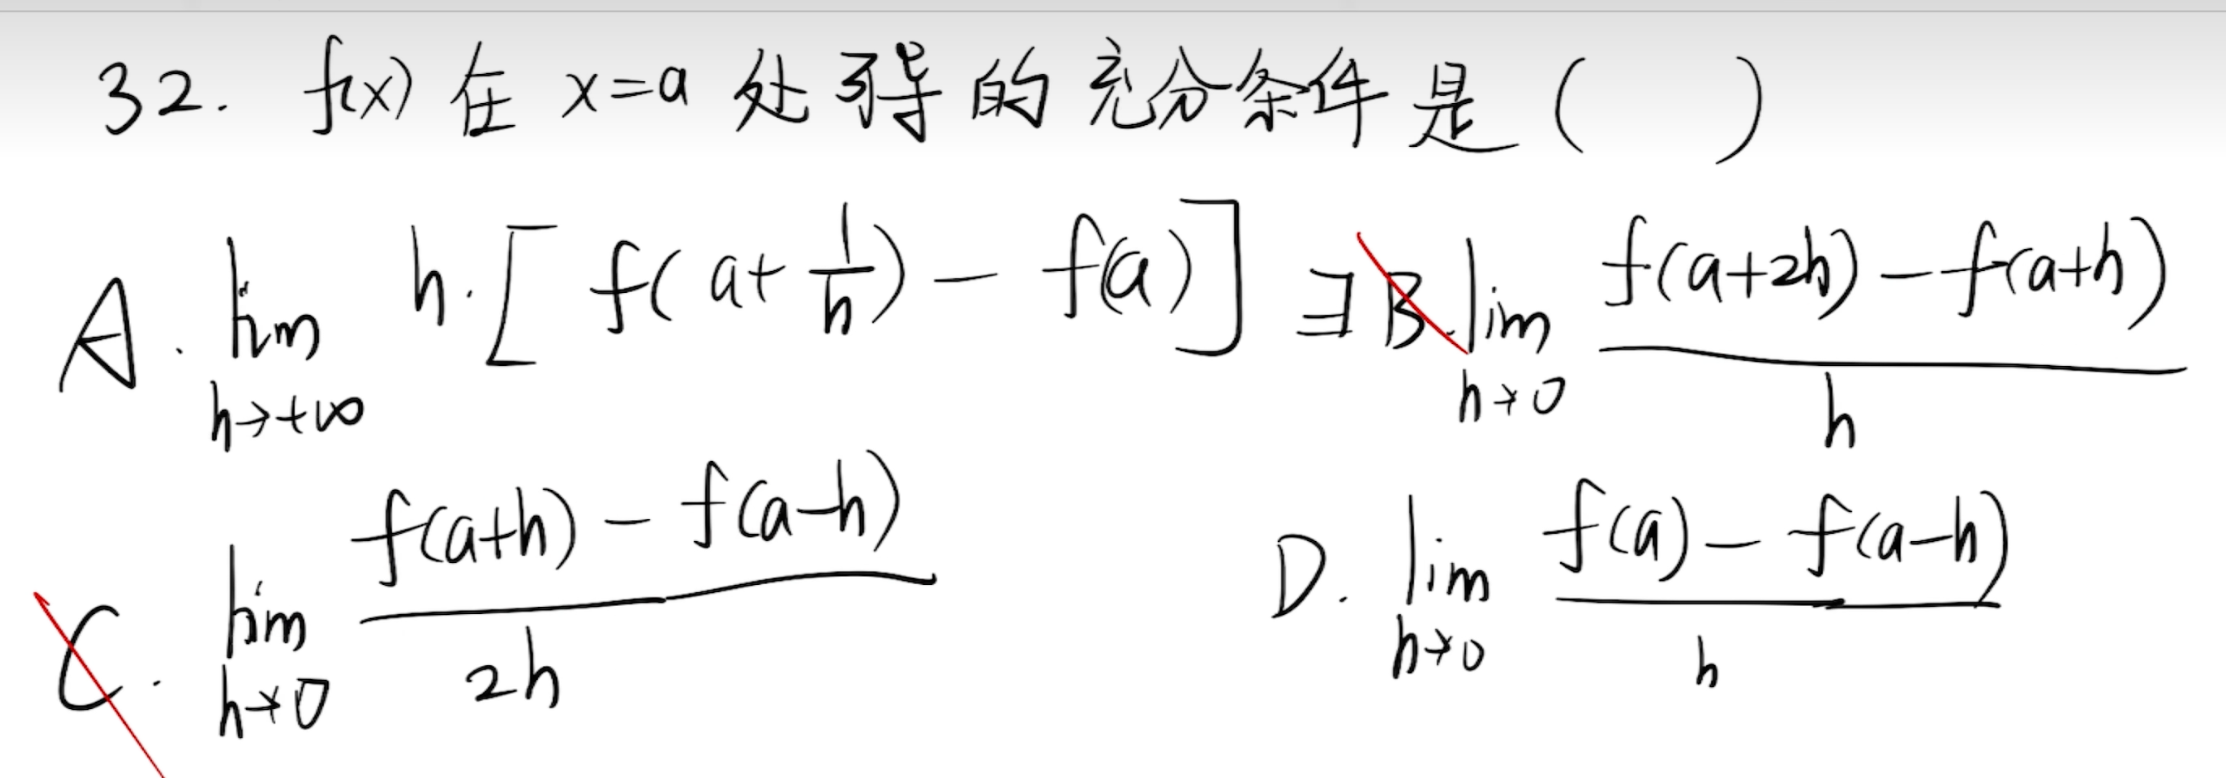 32. f(x) 在 x=a 处可导的充分条件是 ( )
A. lim h→+∞ h·[f(a+1/h) - f(a)] ∃ B. lim h→0 (f(a+2h) - f(a+h))/h
C. lim h→0 (f(a+h) - f(a-h))/2h D. lim h→0 (f(a) - f(a-h))/h